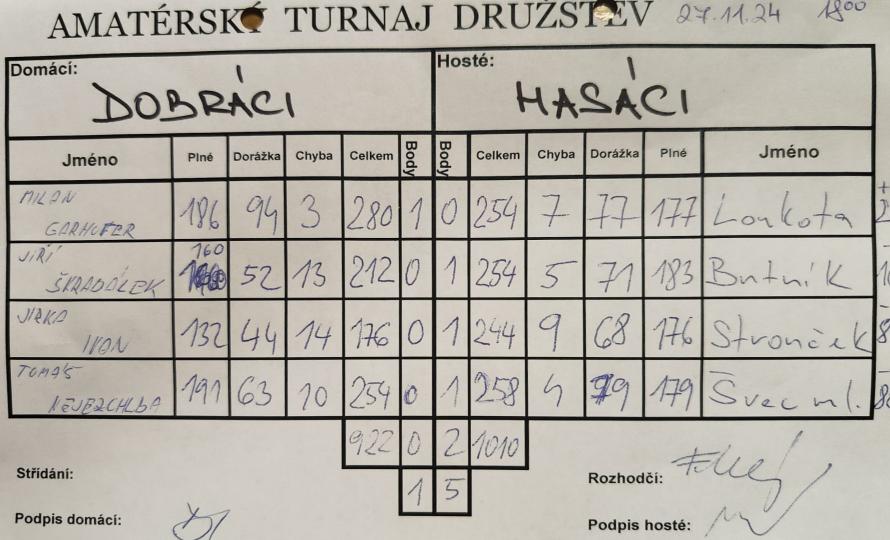 AMATÉRSKÝ TURNAJ DRUŽSTEV 27.11.24 18⁰⁰
Domácí: Hosté:
DOBRÁCI MASÁCI
Jméno Plné Dorážka Chyba Celkem Body Body Celkem Chyba Dorážka Plné Jméno
MILAN GARHOFER 186 94 3 280 1 0 254 7 77 177 Loukota
160
JIŘÍ ŠKRADÁLEK 52 13 212 0 1 254 5 71 183 Butnik
JIRKA IVAN 132 44 14 176 0 1 244 9 68 176 Stronček
TOMÁŠ NEJEZCHLBA 191 63 10 254 0 1 258 4 79 179 Švec ml.
922 0 2 1010
Střídání: 1 5 Rozhodčí:
Podpis domácí: Podpis hosté: